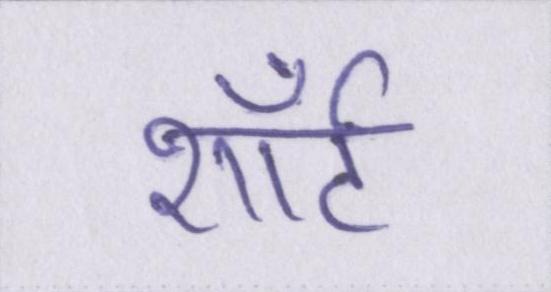 शाँर्ट